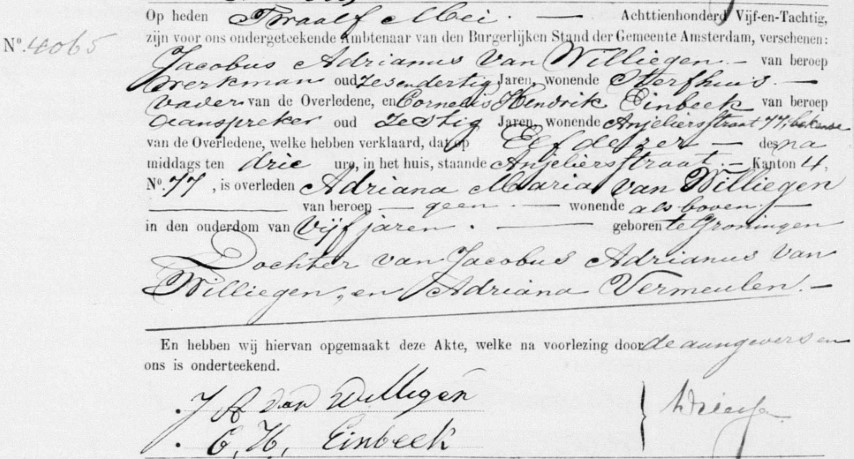 Nº. 4065
Op heden Twaalf Mei. — Achttienhonderd Vijf-en-Tachtig,
zijn voor ons ondergeteekende Ambtenaar van den Burgerlijken Stand der Gemeente Amsterdam, verschenen:
Jacobus Adrianus van Williegen — van beroep
werkman oud zesendertig Jaren, wonende Sterfhuis. —
vader van de Overledene, en Cornelis Hendrik Einbeek van beroep
aanspreker oud zestig Jaren, wonende Anjeliersstraat 77, bekende
van de Overledene, welke hebben verklaard, dat op Elf dezer — des na
middags ten drie ure, in het huis, staande Anjeliersstraat. — Kanton 4,
Nº. 77, is overleden Adriana Maria van Williegen
van beroep — geen — wonende als boven. —
in den ouderdom van Vijf jaren. — geboren te Groningen
Dochter van Jacobus Adrianus van
Williegen, en Adriana Vermeulen. —
En hebben wij hiervan opgemaakt deze Akte, welke na voorlezing door de aangevers en
ons is onderteekend.
J A van Willigen
C, H, Einbeek